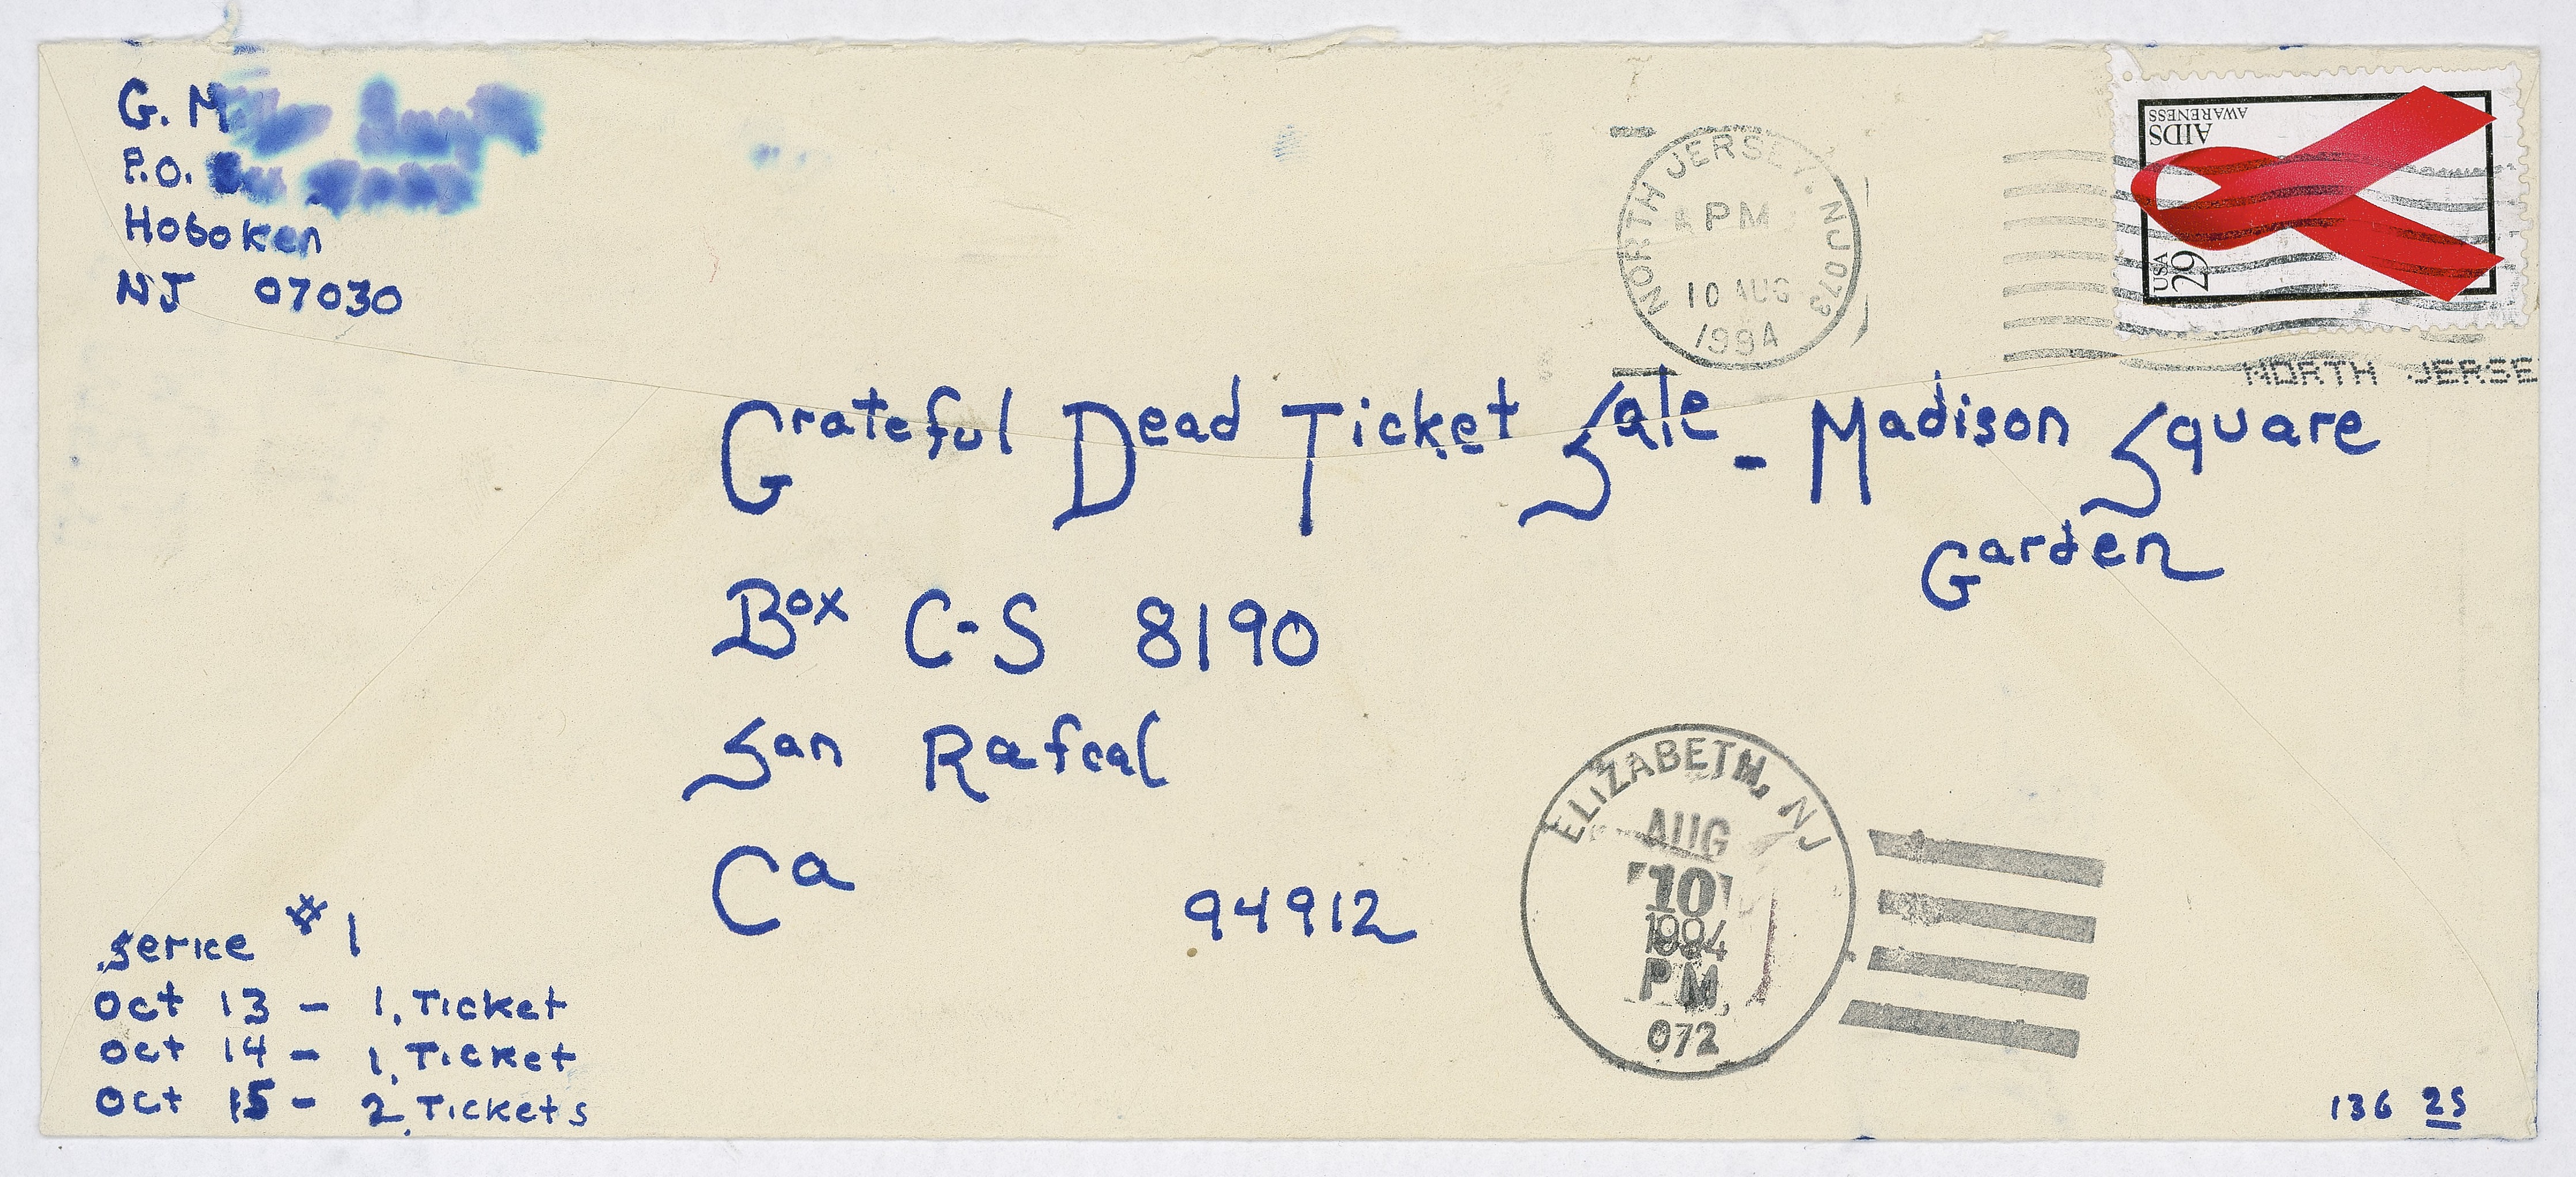 G. M
P.O.
Hoboken
NJ 07030
NORTH JERSEY, NJ 073
PM
10 AUG
1994
AIDS
AWARENESS
USA
29
NORTH JERSE
Grateful Dead Ticket Sale - Madison Square
Garden
Box C-S 8190
San Rafeal
Ca 94912
ELIZABETH, NJ
AUG
10
1994
PM
072
serice #1
Oct 13 - 1. Ticket
Oct 14 - 1. Ticket
Oct 15 - 2. Tickets
136 25